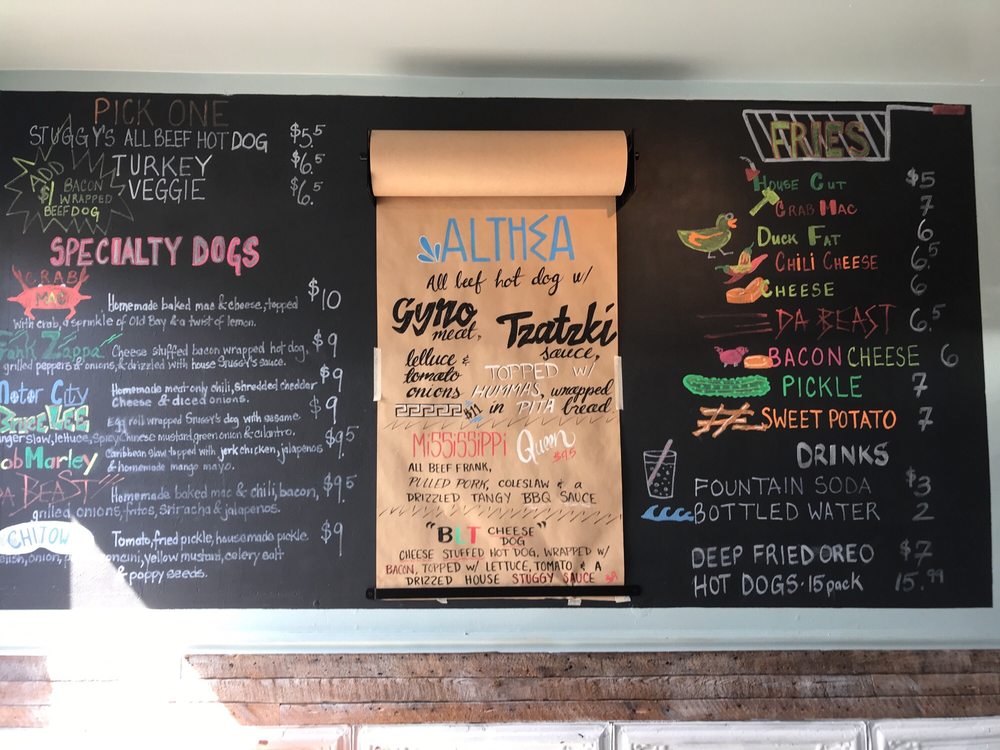 PICK ONE
STUGGY'S ALL BEEF HOT DOG $5.5
TURKEY $6.5
VEGGIE $6.5
ADD
$1 BACON
WRAPPED
BEEF DOG
SPECIALTY DOGS
CRAB
MAC
Homemade baked mac & cheese, topped $10
with crab, a sprinkle of Old Bay & a twist of lemon.
Fonk Zappa Cheese stuffed bacon wrapped hot dog, $9
grilled peppers & onions, & drizzled with house Stuggy's sauce.
Motor City Homemade meat only chili, Shredded cheddar $9
Cheese & diced onions.
Bruce Lee Egg roll wrapped Stuggy's dog with sesame $9
ginger slaw, lettuce, spicy Chinese mustard, green onion & cilantro.
ob Marley Caribbean slaw topped with jerk chicken, jalapenos $9.5
& homemade mango mayo.
DA BEAST Homemade baked mac & chili, bacon, $9.5
grilled onions, fritos, Sriracha & jalapenos.
CHITOW Tomato, fried pickle, housemade pickle $9
elish, onion, yellow mustard, celery salt
& poppy seeds.
ALTHEA
All beef hot dog w/
Gyro meat,
Tzatzki sauce,
lettuce &
tomato
onions
TOPPED W/
HUMMAS, wrapped
$11 in PITA bread
MISSISSIPPI Queen
$9.5
ALL BEEF FRANK,
PULLED PORK, COLESLAW & A
DRIZZLED TANGY BBQ SAUCE
"BLT CHEESE"
DOG
CHEESE STUFFED HOT DOG, WRAPPED W/
BACON, TOPPED W/ LETTUCE, TOMATO & A
DRIZZED HOUSE STUGGY SAUCE $9
FRIES
HOUSE CUT $5
CRAB MAC 7
DUCK FAT 6
CHILI CHEESE 6.5
CHEESE 6
DA BEAST 6.5
BACON CHEESE 6
PICKLE 7
SWEET POTATO 7
DRINKS
FOUNTAIN SODA $3
BOTTLED WATER 2
DEEP FRIED OREO $7
HOT DOGS · 15 pack 15.99